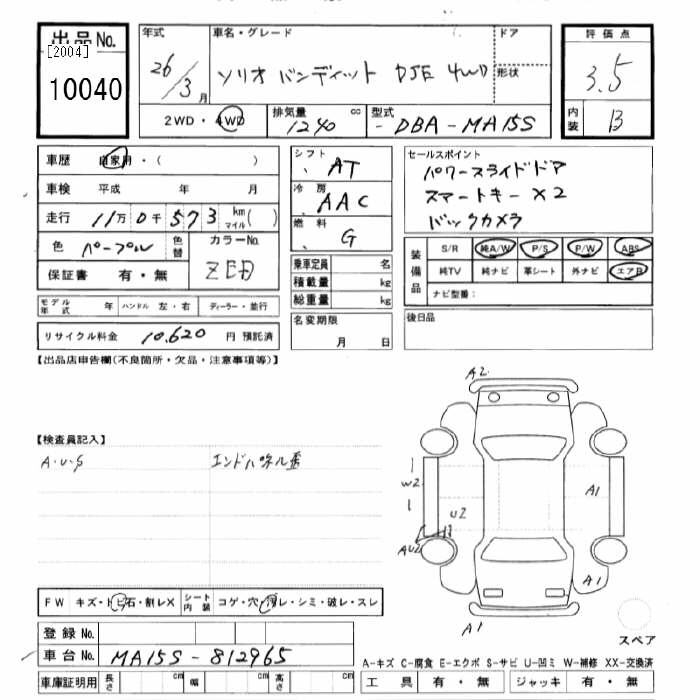 出品 No.
[2004]
10040
年式
26/3月
車名・グレード
ソリオ バンディット DJE 4WD
ドア
形状
評価点
3.5
内装
B
2WD・4WD
排気量
1240 cc
型式
-DBA-MA15S
車歴
自家用・(　　　)
車検
平成　年　月
走行
11万 0千 573 km マイル ( )
色
パープル
色替
カラーNo.
ZED
保証書
有・無
シフト
AT
冷房
AAC
燃料
G
乗車定員 名
積載量 kg
総重量 kg
名変期限
月　日
セールスポイント
パワースライドドア
スマートキー×2
バックカメラ
装備品
S/R 純A/W P/S P/W ABS
純TV 純ナビ 革シート 外ナビ エアB
ナビ型番:
後日品
モデル年式 年 ハンドル 左・右 ディーラー・並行
リサイクル料金 10,620 円 預託済
【出品店申告欄(不良箇所・欠品・注意事項等)】
【検査員記入】
A・U・S
A2
W2
U2
AU2
A1
A1
A1
スペア
FW キズ・トビ石・割レX
シート内装 コゲ・穴・汚レ・シミ・破レ・スレ
登録 No.
車台 No. MA15S-812965
車庫証明用 長さ cm 幅 cm 高さ cm
A-キズ C-腐食 E-エクボ S-サビ U-凹ミ W-補修 XX-交換済
工具 有・無 ジャッキ 有・無